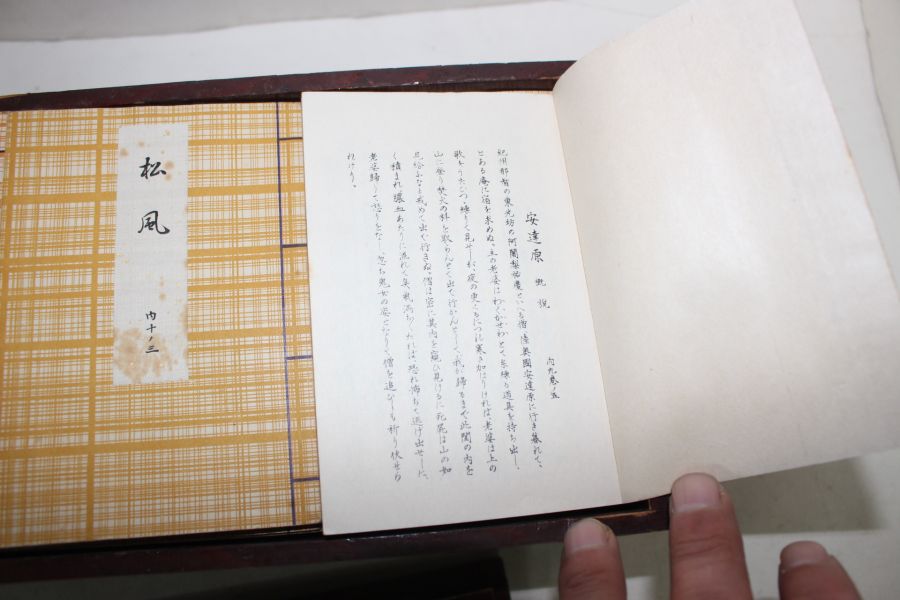 安達原 概説
内九巻ノ五
紀州那智の東光坊の阿闍梨祐慶といへる僧、陸奥國安達原に行き暮れて、
とある庵に宿を求めぬ。主の老婆はわくかせわとて糸繰る道具を持ち出し、
歌をうたひつつ繰りて見せしが、夜の更くるにつれ寒さ加はりければ、老婆は上の
山に登り焚火の料を取らんとて出で行かんとして、我が帰るまで此閨の内を
見給ふなと戒めて出で行きぬ。僧は密に其内を窺ひ見けるに死屍は山の如
く積まれ膿血あたりに流れて臭気満ちたれば、恐れ怖ぢて逃げ出せしに、
老婆帰りて怒りをなし忽ち鬼女の姿となりて僧を追ひしも祈り伏せら
れけり。
松風
内十ノ三